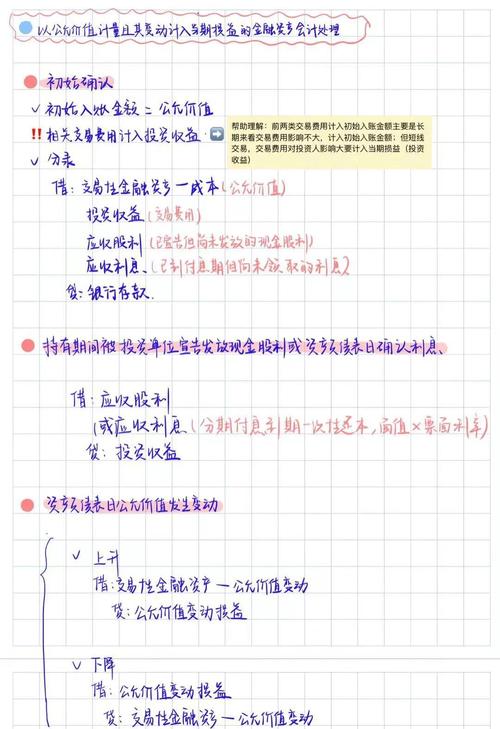 以公允价值计量且其变动计入当期损益的金融资产会计处理
初始确认
✓ 初始入账金额 = 公允价值
‼ 相关交易费用计入投资收益 ➡
帮助理解：前两类交易费用计入初始入账金额主要是长
期来看交易费用影响不大，计入初始入账金额；但短线
交易，交易费用对投资人影响大要计入当期损益（投资
收益）
✓ 分录
借：交易性金融资产 — 成本（公允价值）
投资收益（交易费用）
应收股利（已宣告但尚未发放的现金股利）
应收利息（已到付息期但尚未领取的利息）
贷：银行存款.
持有期间被投资单位宣告发放现金股利或资产负债表日确认利息.
借：应收股利
（或应收利息（分期付息到期一次性还本，面值×票面利率）
贷：投资收益
资产负债表日公允价值发生变动
✓ 上升
借：交易性金融资产 — 公允价值变动
贷：公允价值变动损益
✓ 下降
借：公允价值变动损益
贷：交易性金融资产 — 公允价值变动